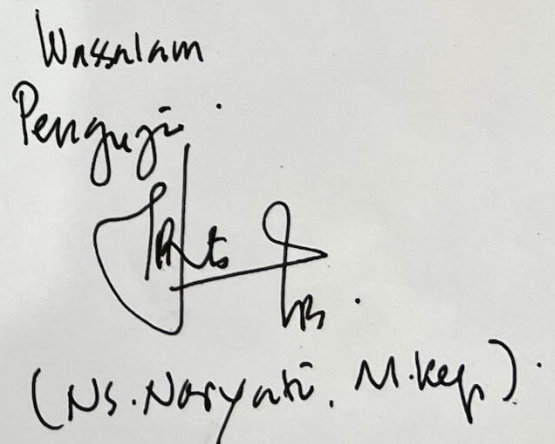 Wassalam
Penguji.
(Ns. Naryati, M.Kep).